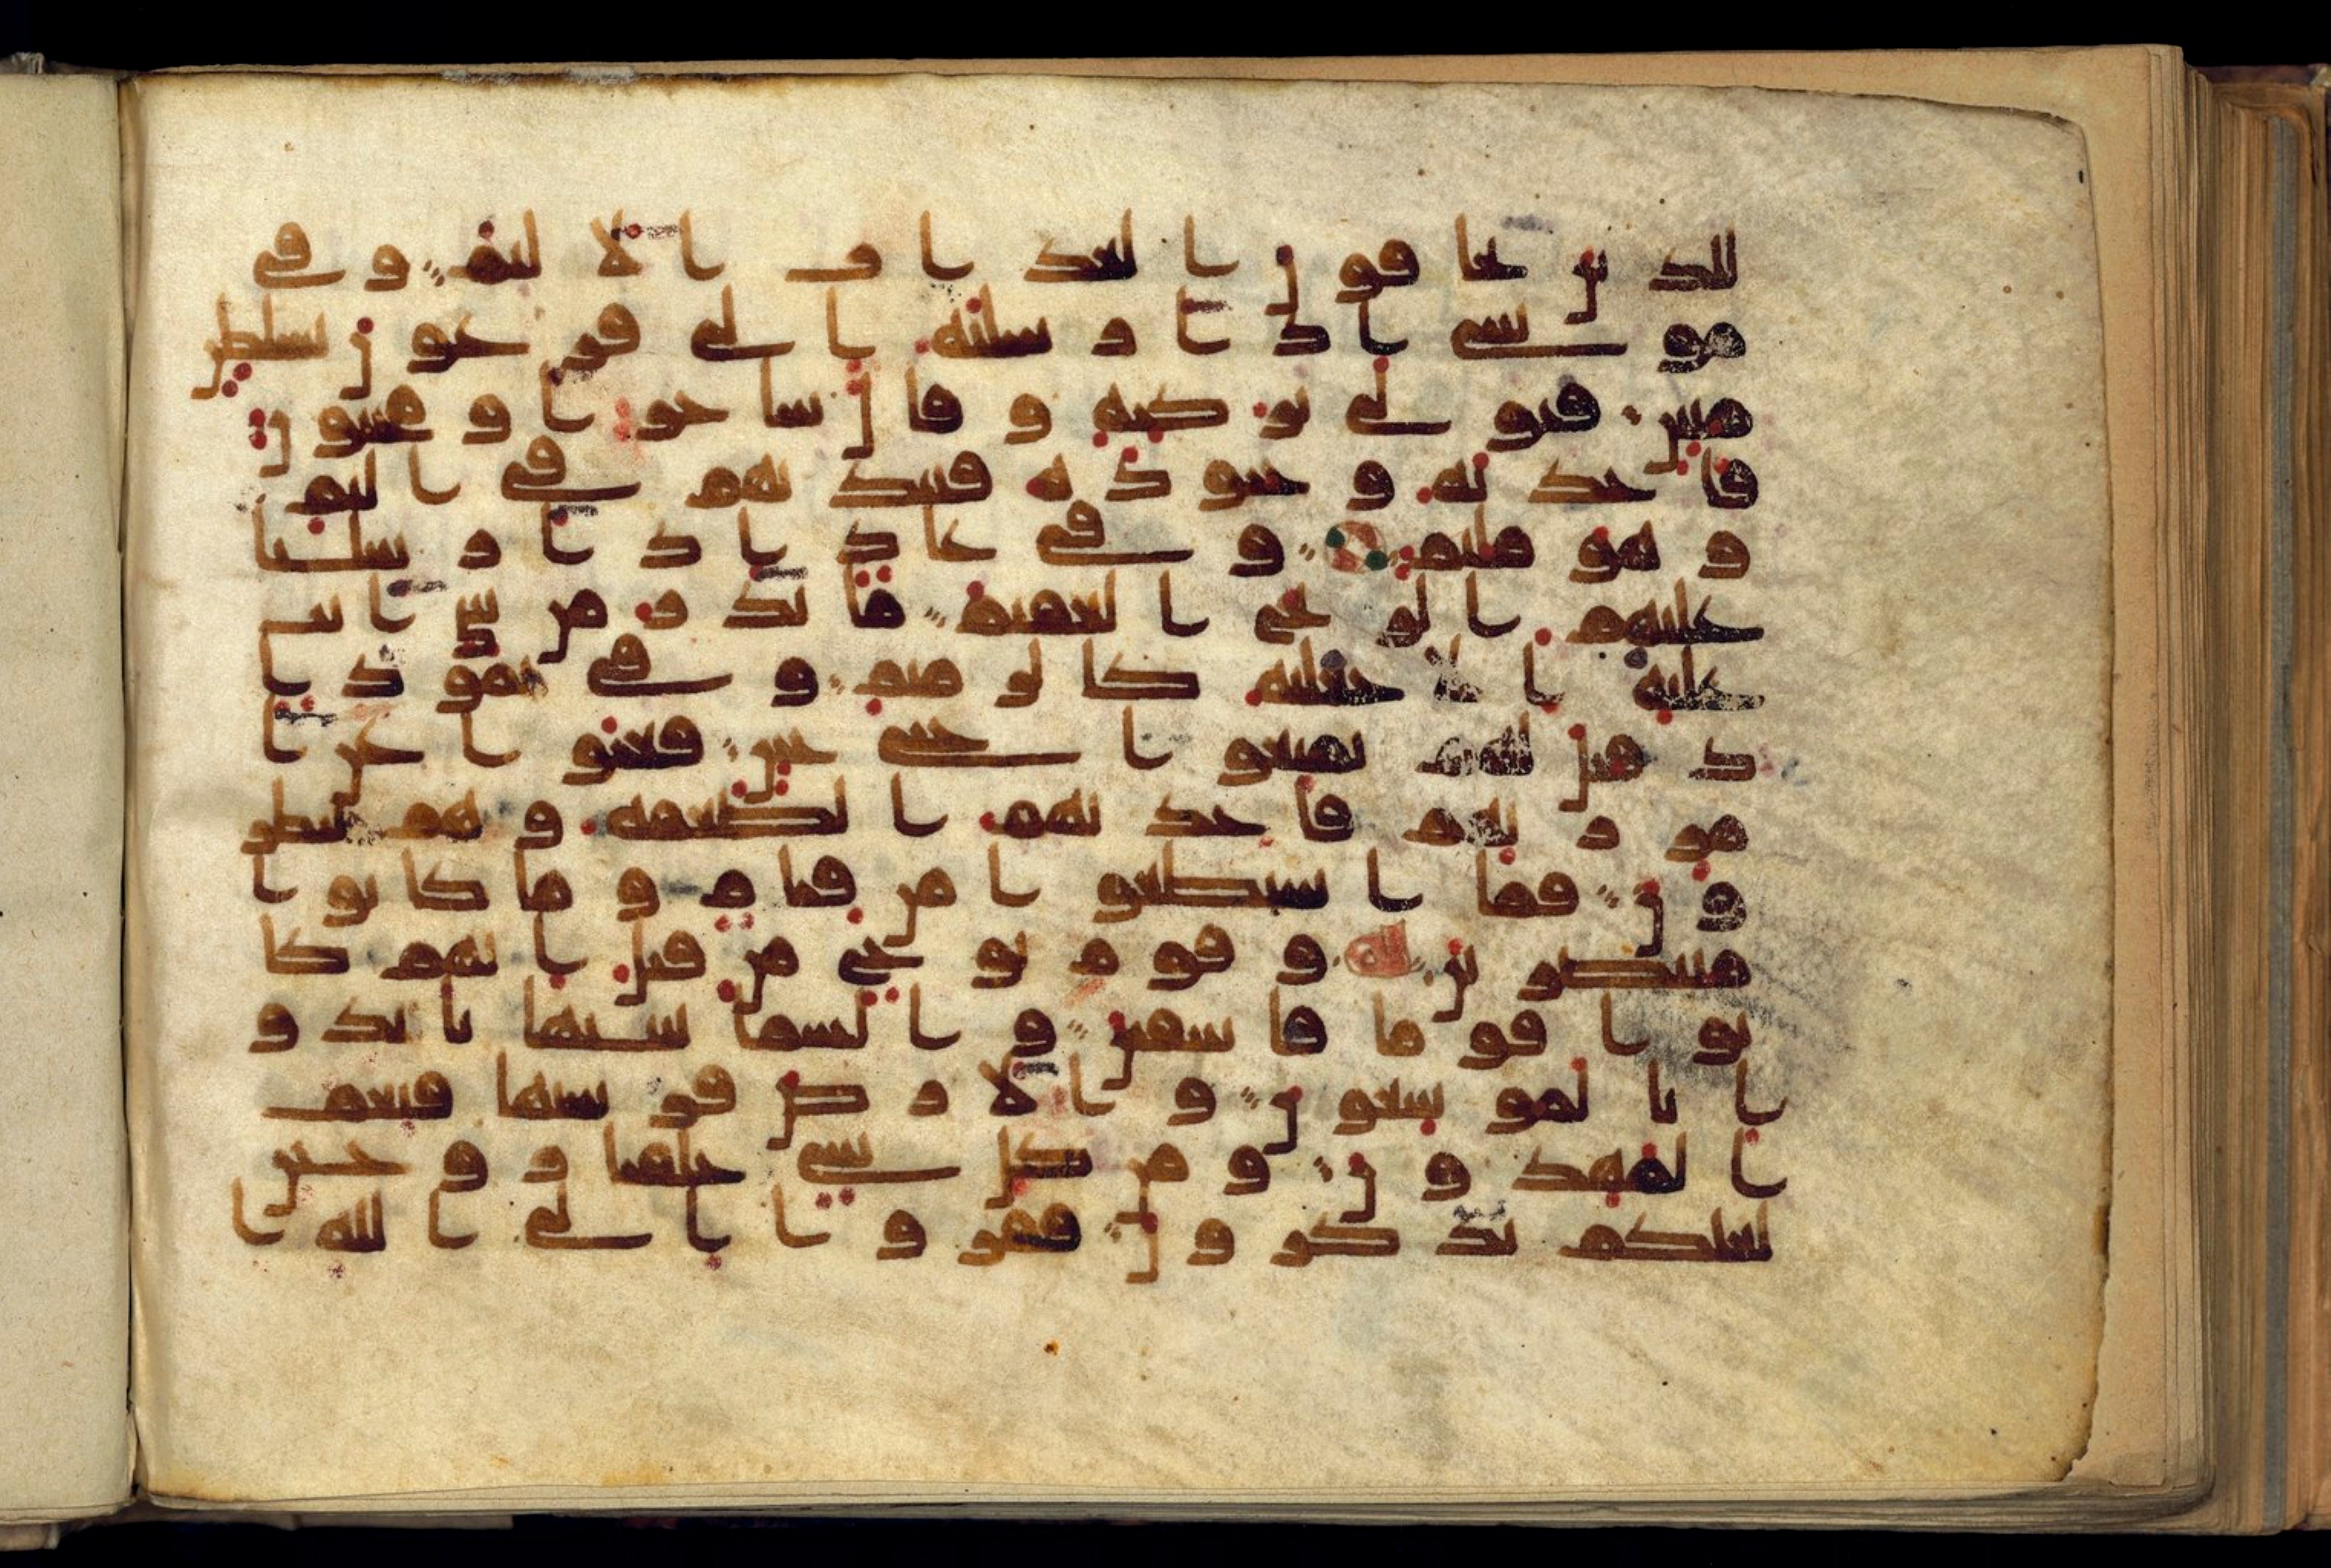 للذين يخافون العذاب الاليم وفي
موسى اذ ارسلنه الى فرعون بسلطن
مبين فتولى بركنه وقال ساحر او مجنون
فاخذنه وجنوده فنبذنهم في اليم
وهو مليم وفي عاد اذ ارسلنا
عليهم الريح العقيم ما تذر من شي اتت
عليه الا جعلته كالرميم وفي ثمود ا
ذ قيل لهم تمتعوا حتى حين فعتوا عن ا
مر ربهم فاخذتهم الصعقه وهم ينظر
ون فما استطعوا من قيام وما كانوا
منتصرين وقوم نوح من قبل انهم كا
نوا قوما فاسقين والسما بنينها بايد و
انا لموسعون والارض فرشنها فنعم
المهدون ومن كل شي خلقنا زوجين
لعلكم تذكرون ففروا الى الله ا